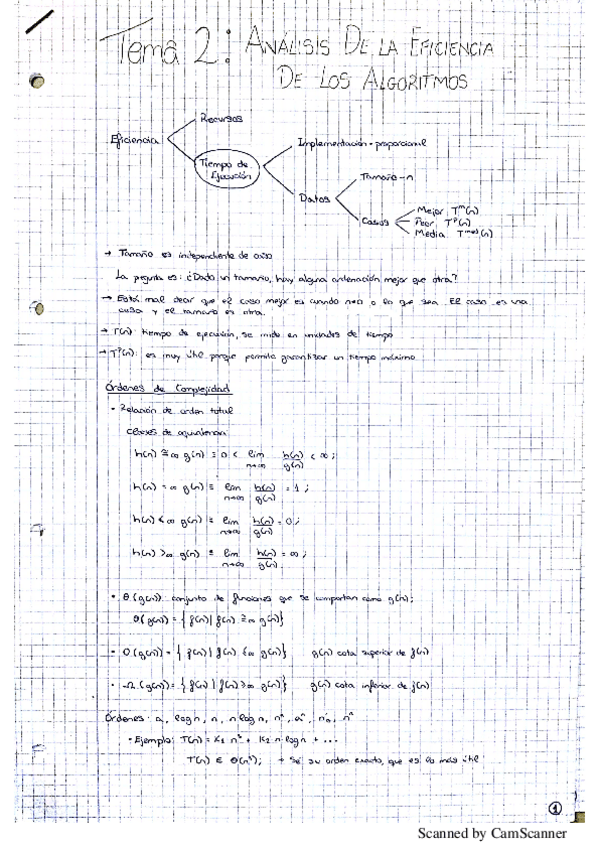 Tema 2: ANÁLISIS DE LA EFICIENCIA
DE LOS ALGORITMOS
Recursos
Eficiencia
Implementación → proporcional
Tiempo de
Ejecución
Tamaño → n
Datos
Mejor T^m(n)
Casos
Peor T^p(n)
Media T^med(n)
→ Tamaño es independiente de caso
La pegunta es: ¿Dado un tamaño, hay alguna ordenación mejor que otra?
→ Está mal decir que el caso mejor es cuando n=0 o lo que sea. El caso es una
cosa y el tamaño es otra.
→ T(n): tiempo de ejecución, se mide en unidades de tiempo
→ T^p(n): es muy útil porque permite garantizar un tiempo máximo
Órdenes de Complejidad
• Relación de orden total
Clases de equivalencia
h(n) ≅∞ g(n) ≡ 0 < lim n→∞ h(n)/g(n) < ∞;
h(n) =∞ g(n) ≡ lim n→∞ h(n)/g(n) = 1;
h(n) <∞ g(n) ≡ lim n→∞ h(n)/g(n) = 0;
h(n) >∞ g(n) ≡ lim n→∞ h(n)/g(n) = ∞;
• Θ(g(n)): conjunto de funciones que se comportan como g(n);
Θ(g(n)) = { f(n) | f(n) ≅∞ g(n)}
• O(g(n)) = { f(n) | f(n) ≤∞ g(n)} g(n) cota superior de f(n)
• Ω(g(n)) = { f(n) | f(n) ≥∞ g(n)} g(n) cota inferior de f(n)
Órdenes: a, log n, n, n log n, n^a, a^n, n!, n^n
• Ejemplo: T(n) = K₁ n² + K₂ n log n + ...
T(n) ∈ Θ(n²); → Sé su orden exacto, que es lo más útil
1
Scanned by CamScanner